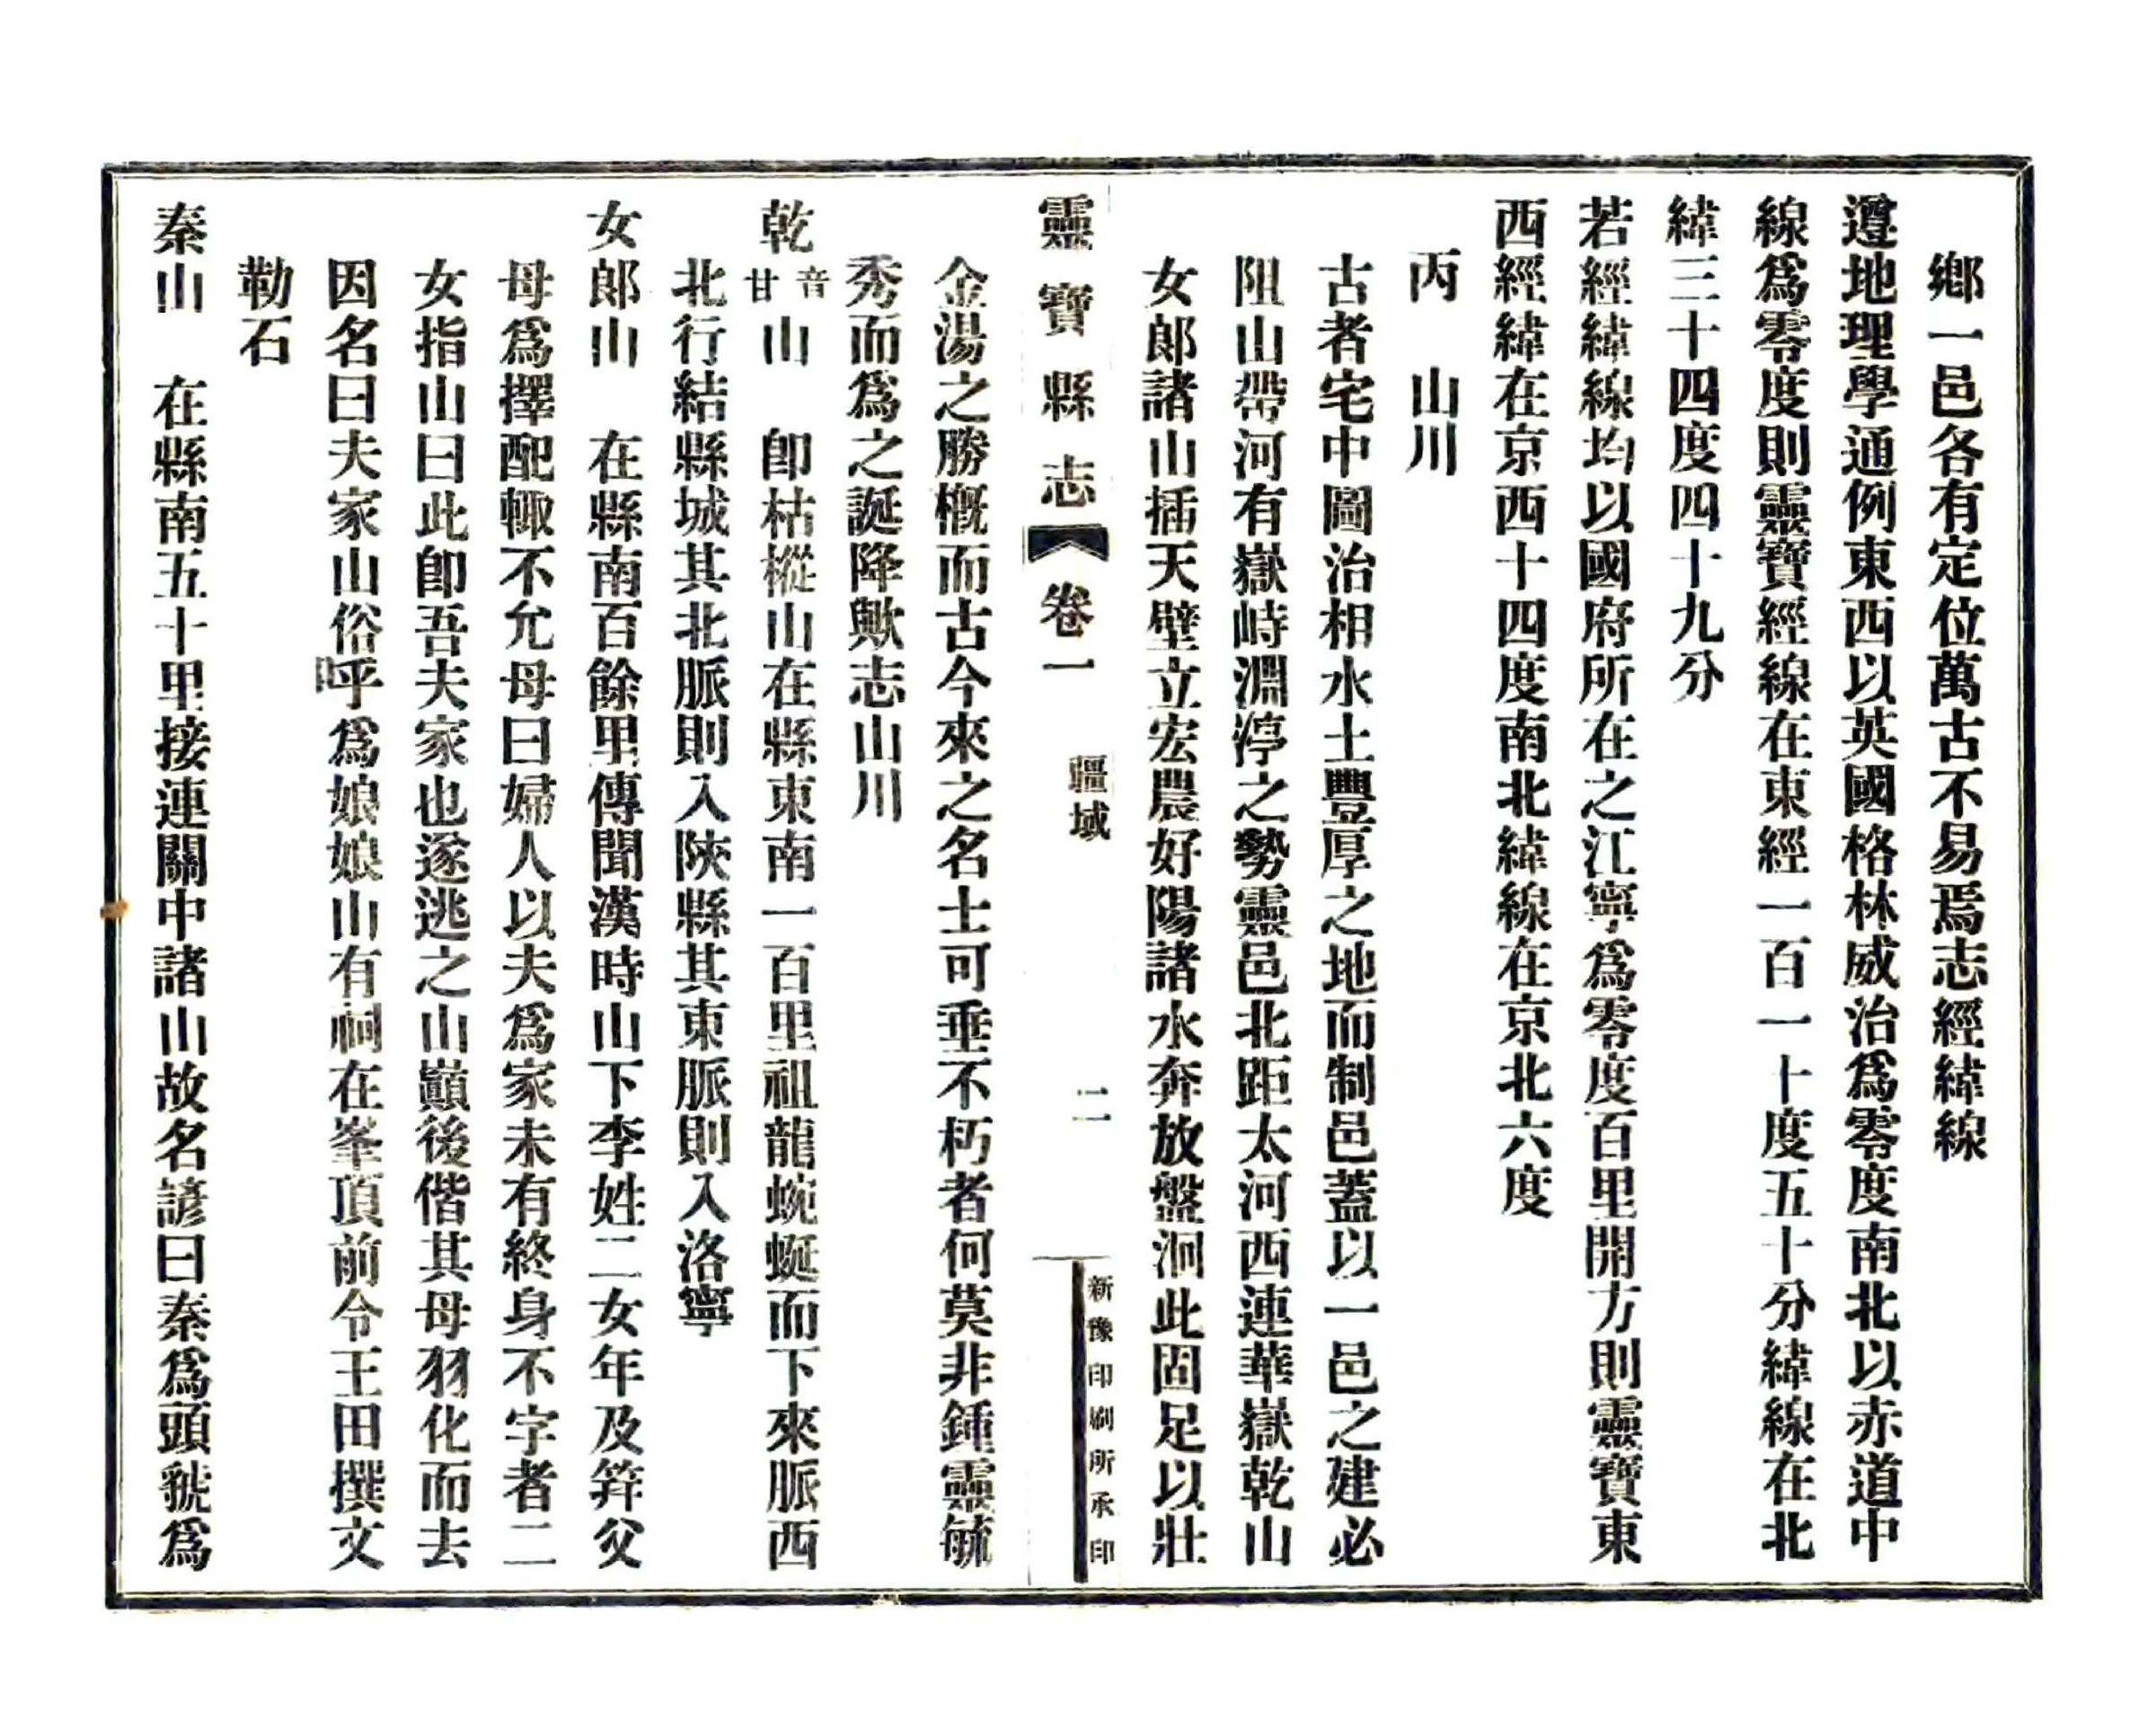 鄉一邑各有定位萬古不易焉志經緯線
遵地理學通例東西以英國格林威治爲零度南北以赤道中
線爲零度則靈寶經線在東經一百一十度五十分緯線在北
緯三十四度四十九分
若經緯線均以國府所在之江寧爲零度百里開方則靈寶東
西經緯在京西十四度南北緯線在京北六度
丙　山川
古者宅中圖治相水土豐厚之地而制邑蓋以一邑之建必
阻山帶河有嶽峙淵渟之勢靈邑北距太河西連華嶽乾山
女郎諸山插天壁立宏農好陽諸水奔放盤洄此固足以壯
靈寶縣志　卷一　疆域　二　新豫印刷所承印
金湯之勝概而古今來之名士可垂不朽者何莫非鍾靈毓
秀而爲之誕降歟志山川
乾音甘山　卽枯樅山在縣東南一百里祖龍蜿蜒而下來脈西
北行結縣城其北脈則入陝縣其東脈則入洛寧
女郎山　在縣南百餘里傳聞漢時山下李姓二女年及笄父
母爲擇配輙不允母曰婦人以夫爲家未有終身不字者二
女指山曰此卽吾夫家也遂逃之山巔後偕其母羽化而去
因名曰夫家山俗呼爲娘娘山有祠在峯頂前令王田撰文
勒石
秦山　在縣南五十里接連關中諸山故名諺曰秦爲頭虢爲